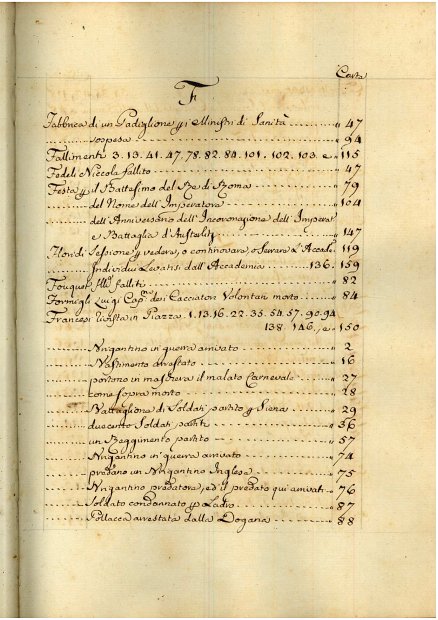 Carte
F
Fabbrica di un Padiglione p i Ministri di Sanità .......... " 47
sospesa .......... " 94
Fallimenti 3. 13. 41. 47. 78. 82. 84. 101. 102. 103. e " 115
Fedeli Niccola fallito .......... " 47
Festa p il Battesimo del Re di Roma .......... " 79
del Nome dell'Imperatore .......... " 104
dell'Anniversario dell'Incoronazione dell'Imperat
e Battaglia d'Austerliz .......... " 147
Floridi Sessione p vedere, o continovare, o serrare l'Accade. 119
Individui Levatisi dall'Accademia .......... 136. 159
Fouquet falliti .......... " 82
Formigli Luigi Cap. dei Cacciatori Volontari morto .......... " 84
Francesi Rivista in Piazza 1. 13. 16. 22. 35. 54. 57. 90. 94
138. 146. e " 150
Brigantino in guerra arrivato .......... " 2
Bastimento arrestato .......... " 16
portono in maschera il malato Carnevale .......... " 27
come sopra morto .......... " 28
Battaglione di Soldati partito p Siena .......... " 29
duecento Soldati partiti .......... " 36
un Reggimento partito .......... " 57
Brigantino in guerra arrivato .......... " 74
predano un Brigantino Inglese .......... " 75
Brigantino predatore, ed il predato qui arrivati " 76
Soldato condannato p Ladro .......... " 87
Pollacca arrestata dalla Dogana .......... " 88